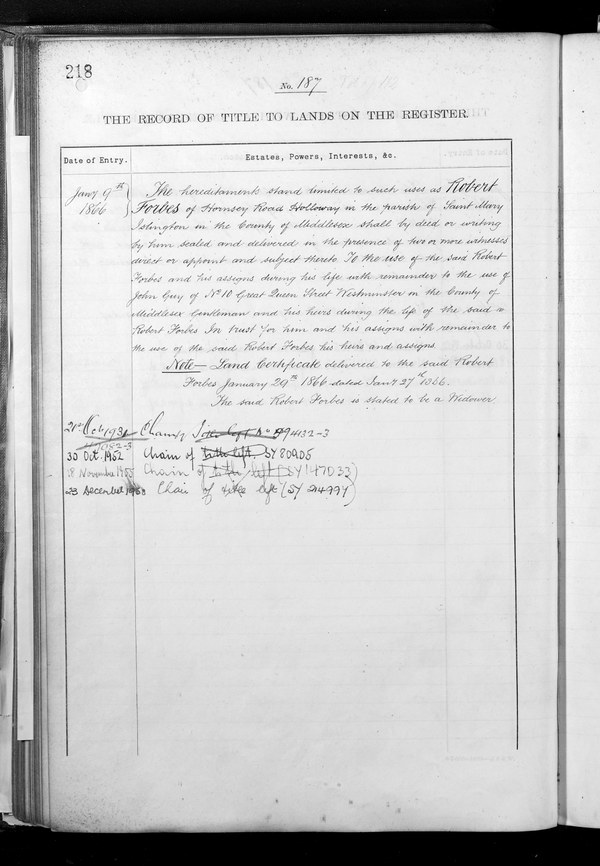 218
No. 187
THE RECORD OF TITLE TO LANDS ON THE REGISTER.
Date of Entry.
Estates, Powers, Interests, &c.
Jany 9th
1866
The hereditaments stand limited to such uses as Robert
Forbes of Hornsey Road Holloway in the parish of Saint Mary
Islington in the County of Middlesex shall by deed or writing
by him sealed and delivered in the presence of two or more witnesses
direct or appoint and subject thereto To the use of the said Robert
Forbes and his assigns during his life with remainder to the use of
John Guy of No 10 Great Queen Street Westminster in the County of
Middlesex Gentleman and his heirs during the life of the said
Robert Forbes In trust for him and his assigns with remainder to
the use of the said Robert Forbes his heirs and assigns
Note — Land Certificate delivered to the said Robert
Forbes January 29th 1866 dated Jany 27th 1866.
The said Robert Forbes is stated to be a Widower
21st Oct 1931 Chain of Title left No
30 Oct. 1952 Chain of title left. SY 80905
18 November 1955 Chain of title left (SY 147033)
23 December Chain of title left (SY 214997)